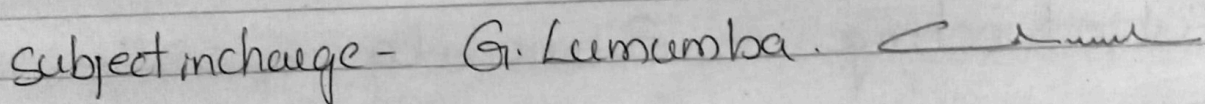 subject incharge - G. Lumumba.